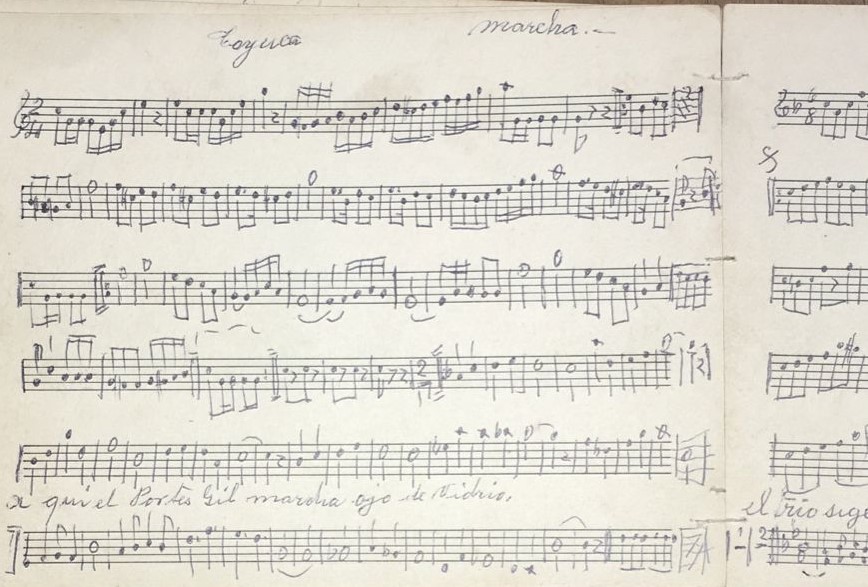 Toyuca marcha.-
a qui el Portes Gil marcha ojo de Vidrio.
el Trio sige